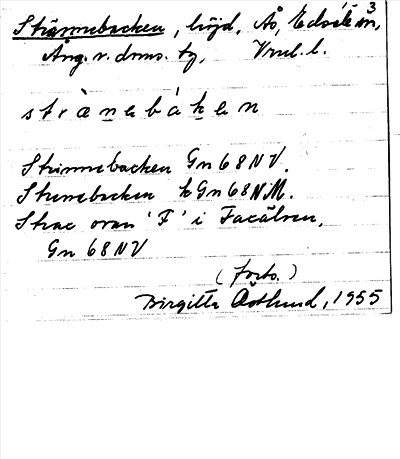 Strännebacken, höjd, Ås, Edsele sn, 3
Ång. v. doms. tg, Vnrl. l.
strànebáken
Strinnebacken Gn 68 NV.
Strennebacken hGn 68 NM.
Strax ovan 'F' i Faxälven,
Gn 68 NV
(forts.)
Birgitta Östlund, 1955